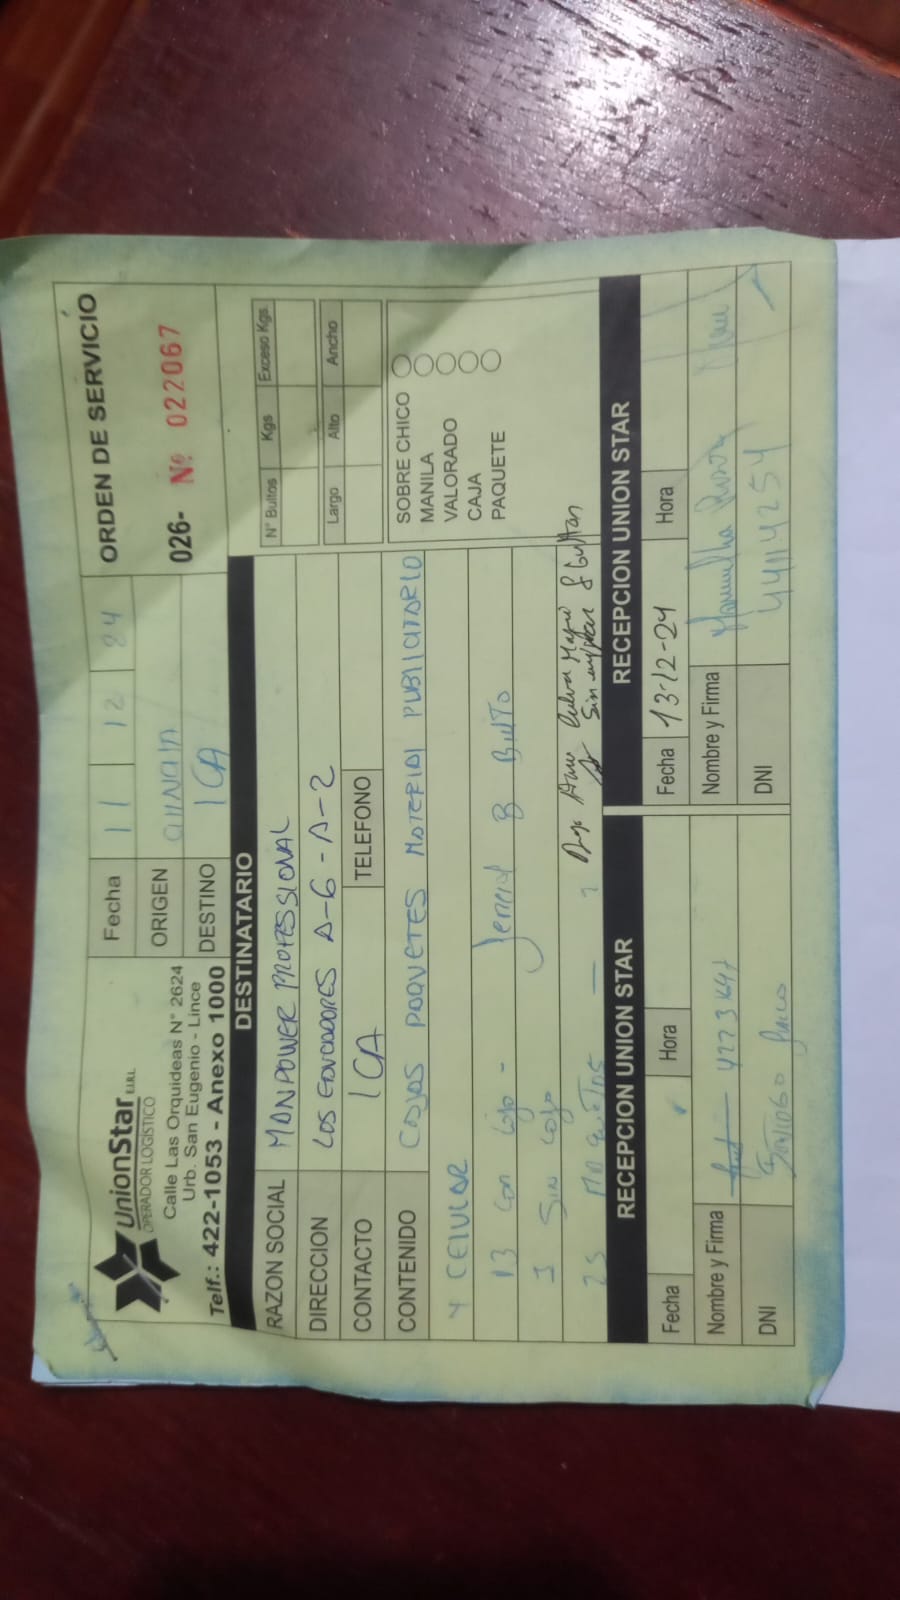 UnionStar E.I.R.L.
OPERADOR LOGÍSTICO
Calle Las Orquideas N° 2624
Urb. San Eugenio - Lince
Telf.: 422-1053 - Anexo 1000
Fecha 11 12 24
ORIGEN
DESTINO ICA
ORDEN DE SERVICIO
026- Nº 022067
DESTINATARIO
RAZON SOCIAL MANPOWER PROFESSIONAL
DIRECCION LOS EDUCADORES A-6-A-2
CONTACTO ICA TELEFONO
CONTENIDO CAJAS PAQUETES MATERIAL PUBLICITARIO
Y CELULAR
13 Con caja - B BULTO
1 SIN caja
25
Sin
N° Bultos Kgs Exceso Kgs.
Largo Alto Ancho
SOBRE CHICO
MANILA
VALORADO
CAJA
PAQUETE
RECEPCION UNION STAR
Fecha Hora
Nombre y Firma
DNI
RECEPCION UNION STAR
Fecha 13-12-24 Hora
Nombre y Firma
DNI 44114254